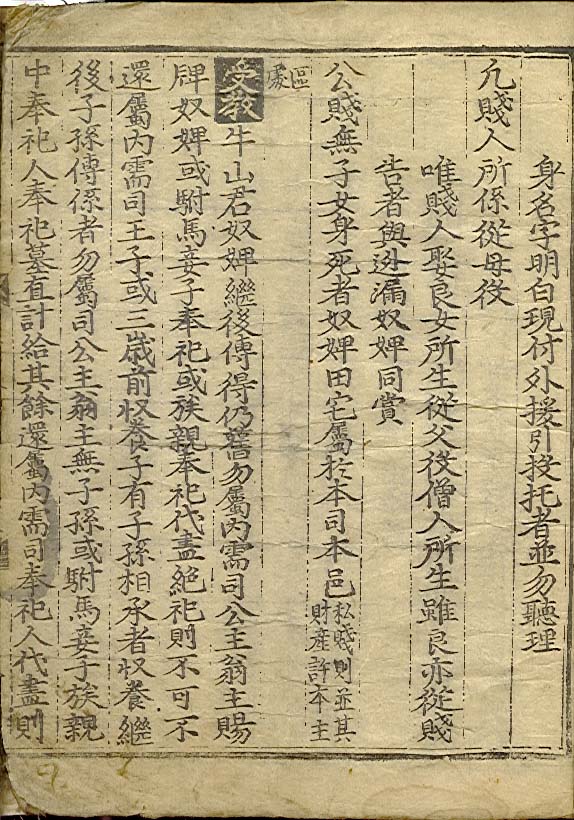 身名字明白現付外援引投托者並勿聽理
凡賤人所係從母役
唯賤人娶良女所生從父役僧人所生雖良亦從賤
告者與迯漏奴婢同賞
公賤無子女身死者奴婢田宅屬於本司本邑私賤則並其財産許本主
區處
受教牛山君奴婢繼後傳得仍舊勿屬內需司公主翁主賜
牌奴婢或駙馬妾子奉祀或族親奉祀代盡絕祀則不可不
還屬內需司王子或三歲前收養子有子孫相承者收養繼
後子孫傳係者勿屬司公主翁主無子孫或駙馬妾子族親
中奉祀人奉祀墓直計給其餘還屬內需司奉祀人代盡則